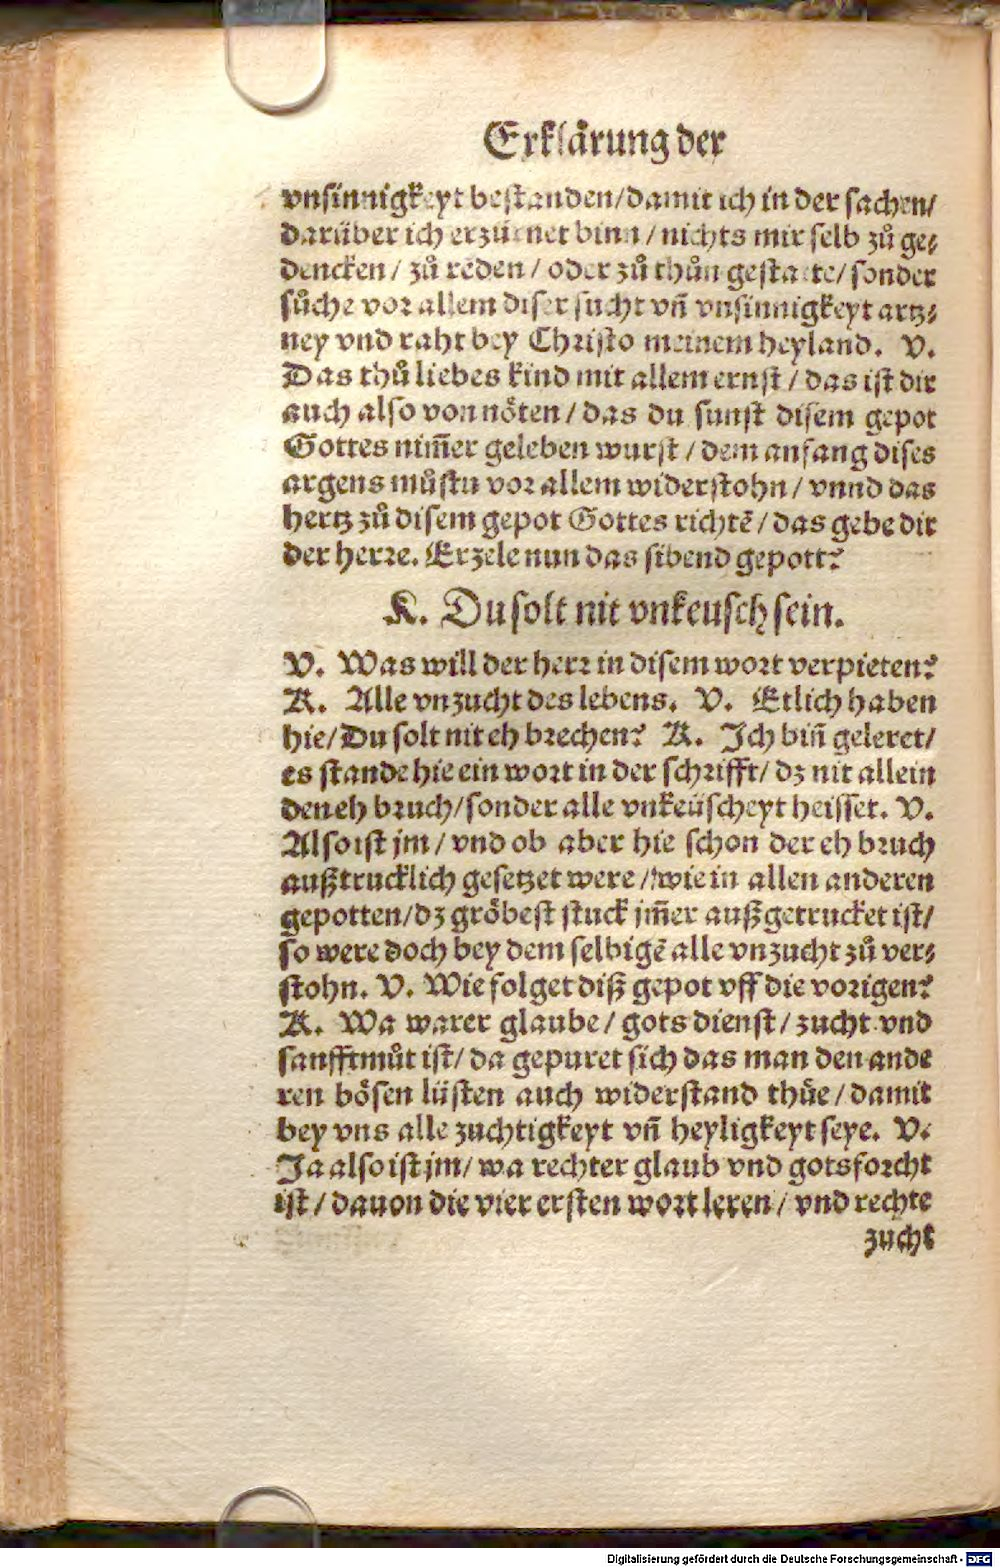 Erklårung der
vnsinnigkeyt bestanden/damit ich in der sachen/
darüber ich erzürnet binn/nichts mir selb zů ge⸗
dencken/ zů reden/oder zů thůn gestatte/sonder
sůche vor allem diser sucht vn̄ vnsinnigkeyt artz⸗
ney vnd raht bey Christo meinem heyland. V.
Das thů liebes kind mit allem ernst/das ist dir
auch also von nöten/das du sunst disem gepot
Gottes nim̄er geleben wurst/dem anfang dises
argens můstu vor allem widerstohn/vnnd das
hertz zů disem gepot Gottes richtē/das gebe dir
der herre. Erzele nun das sibend gepott?
K. Du solt nit vnkeusch sein.
V. Was will der herr in disem wort verpieten?
K. Alle vnzucht des lebens. V. Etlich haben
hie/Du solt nit eh brechen? K. Ich bin̄ geleret/
es stande hie ein wort in der schrifft/dz nit allein
den eh bruch/sonder alle vnkeüscheyt heisset. V.
Also ist jm/vnd ob aber hie schon der eh bruch
außtrucklich gesetzet were/wie in allen anderen
gepotten/dz gröbest stuck jm̄er außgetrucket ist/
so were doch bey dem selbigē alle vnzucht zů ver⸗
stohn. V. Wie folget diß gepot vff die vorigen?
K. Wa warer glaube/gots dienst/zucht vnd
sanfftmůt ist/da gepuret sich das man den ande
ren bösen lüsten auch widerstand thůe/damit
bey vns alle zuchtigkeyt vn̄ heyligkeyt seye. V.
Ja also ist jm/wa rechter glaub vnd gotsforcht
ist/dauon die vier ersten wort leren/vnd rechte
zucht
Digitalisierung gefördert durch die Deutsche Forschungsgemeinschaft - DFG